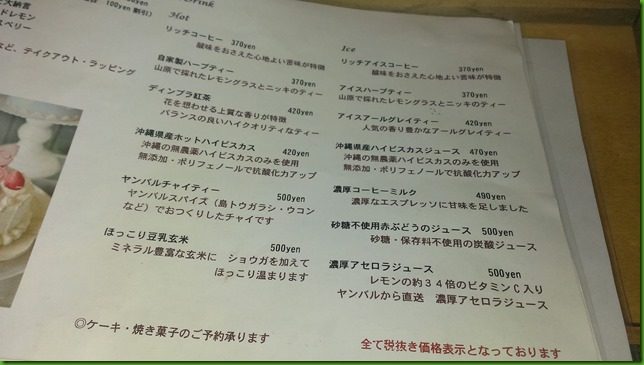 100yen 割引)
ドレモン
ベリー
など、テイクアウト・ラッピング
Drink
Hot
リッチコーヒー 370yen
酸味をおさえた心地よい苦味が特徴
自家製ハーブティー 370yen
山原で採れたレモングラスとニッキのティー
ディンブラ紅茶 420yen
花を想わせる上質な香りが特徴
バランスの良いハイクオリティなティー
沖縄県産ホットハイビスカス 420yen
沖縄の無農薬ハイビスカスのみを使用
無添加・ポリフェノールで抗酸化力アップ
ヤンバルチャイティー 500yen
ヤンバルスパイズ（島トウガラシ・ウコン
など）でおつくりしたチャイです
ほっこり豆乳玄米 500yen
ミネラル豊富な玄米に ショウガを加えて
ほっこり温まります
◎ケーキ・焼き菓子のご予約承ります
Ice
リッチアイスコーヒー 370yen
酸味をおさえた心地よい苦味が特徴
アイスハーブティー 370yen
山原で採れたレモングラスとニッキのティー
アイスアールグレイティー 420yen
人気の香り豊かなアールグレイティー
沖縄県産ハイビスカスジュース 470yen
沖縄の無農薬ハイビスカスのみを使用
無添加・ポリフェノールで抗酸化力アップ
濃厚コーヒーミルク 490yen
濃厚なエスプレッソに甘味を足しました
砂糖不使用赤ぶどうのジュース 500yen
砂糖・保存料不使用の炭酸ジュース
濃厚アセロラジュース 500yen
レモンの約３４倍のビタミンＣ入り
ヤンバルから直送 濃厚アセロラジュース
全て税抜き価格表示となっております